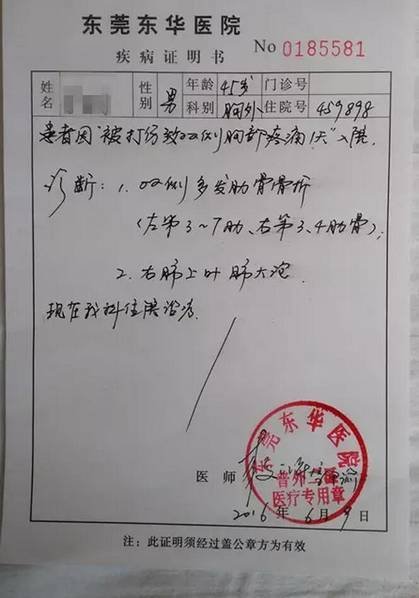 东莞东华医院
疾病证明书
No 0185581
姓名 性别 男 年龄 45岁 门诊号
科别 胸外 住院号 459898
患者因"被打伤致双侧胸部疼痛1天"入院.
诊断：1. 双侧多发肋骨骨折
(左第3~7肋、右第3、4肋骨);
2. 右肺上叶肺大泡
现在我科住院治疗.
医师
东莞东华医院
普外二科
医疗专用章
2016年6月9日
注：此证明须经过盖公章方为有效